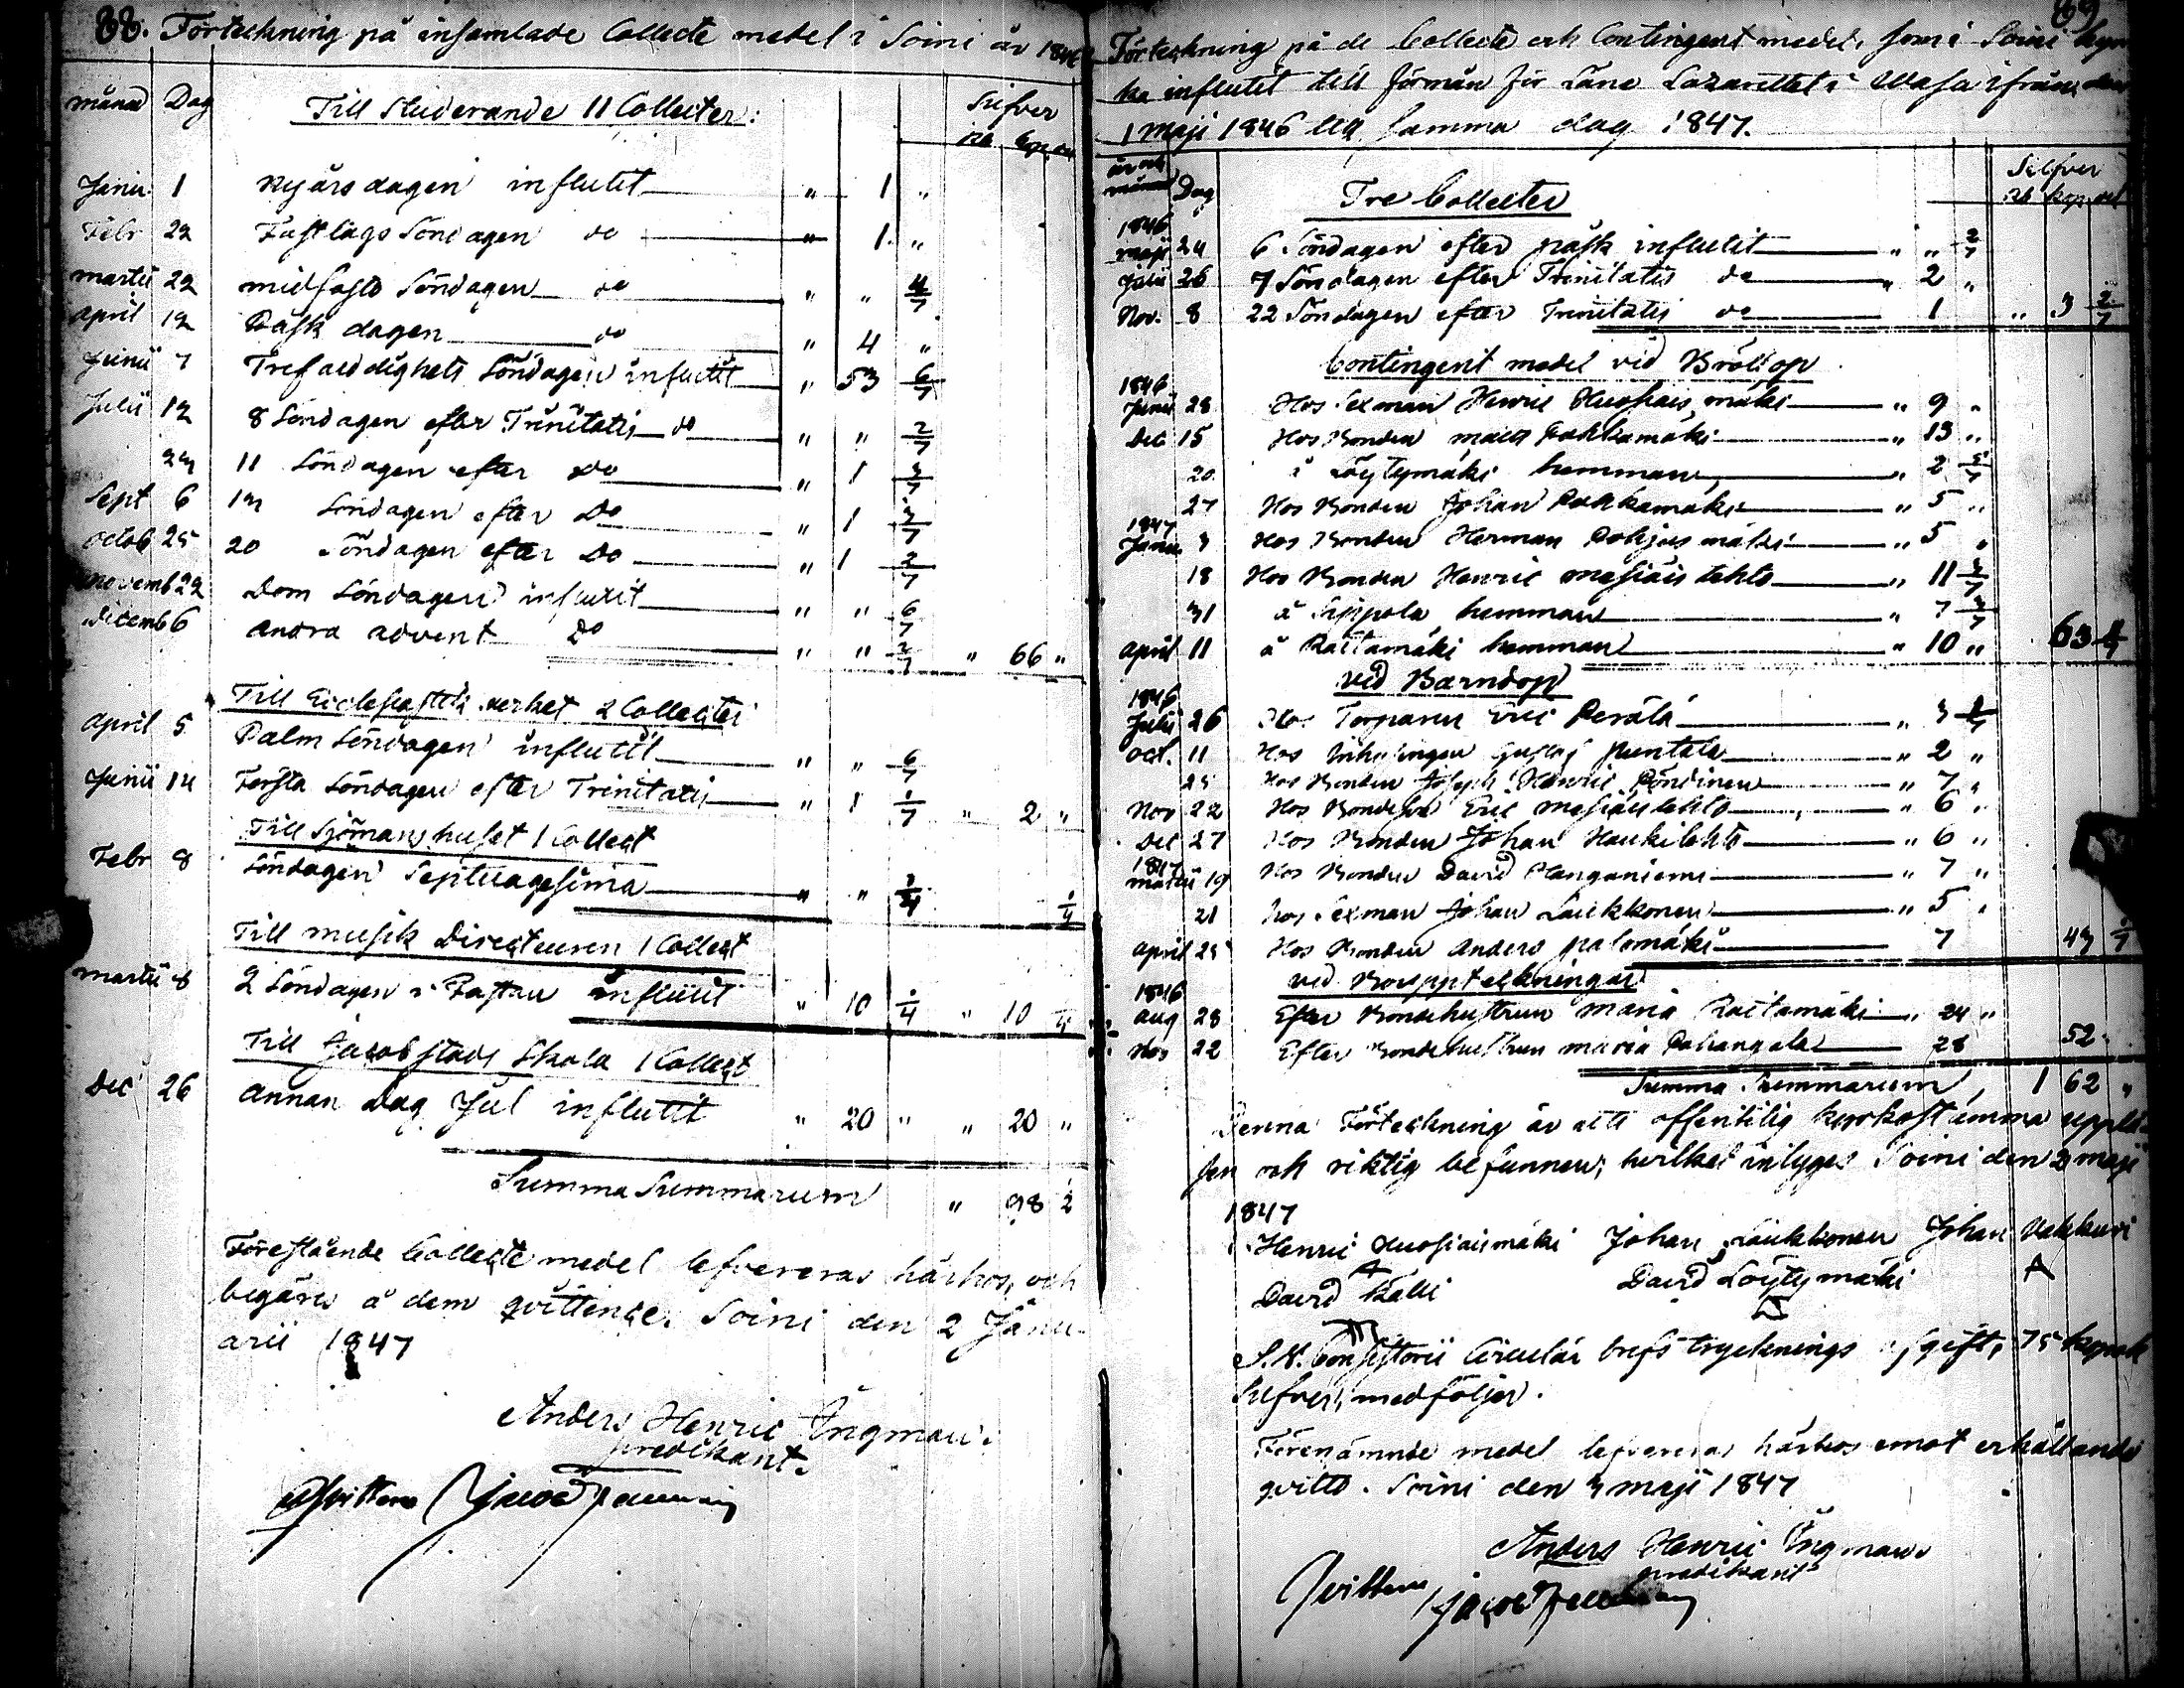 88. Förteckning på insamlade Collecte medel i Soini år 1846
månad Dag Till Studerande 11 Collecter: Silfver
Rb Kop.
Janu. 1 Nyårsdagen influtit " 1 "
Febr 22 Fastlags Söndagen do " 1 "
Martii 22 Midfasto Söndagen do " " 4/7
April 12 Påsk dagen do " 4 "
Junii 7 Trefaldighets Söndagen influtit " 53 6/7
Julii 12 8 Söndagen efter Trinitatis do " " 2/7
11 Söndagen efter Do " 1
Sept 6 Söndagen efter Do " 1
Octob 25 20 Söndagen efter Do " 1 2/7
Novemb 22 Dom Söndagen influtit " " 6/7
Decemb 6 Andra advent Do " " 2/7 " 66 "
Till Ecclesiastik verket 2 Collecter
April 5 Palm Söndagen influtit " " 6/7
Junii 14 Första Söndagen efter Trinitatis " 1 1/7 " 2 "
Till Sjömanshuset 1 Collect
Febr 8 Söndagen Septuagesima " "
Till Musik Directeuren 1 Collect
Martii 8 2 Söndagen i Fastan influtit " 10 1/4 " 10 1/4
Till Jacobstads Skola 1 Collect
Dec 26 Annan Dag Jul influtit " 20 " " 20 "
Summa Summarum " 98 2
Förestående Collecte medel lefvereras härhos, och
begäres å dem qvittence. Soini den 2 Janu-
arii 1847
Anders Henric Ingman.
predikant.
Qvitteras Jacob
89
Förteckning på de Collecte och Contingent medel, som i Soini
ka influtit till förmån för Läns Lazarettet i Wasa ifrån den
1 Maji 1846 till samma dag 1847.
år och månad Dag Tre Collecter Silfver
Rb kop
1846
Maji 24 6 Söndagen efter påsk influtit " " 2/7
Julii 26 7 Söndagen efter Trinitatis do " 2 "
Nov. 8 22 Söndagen efter Trinitatis do 1 " 3 2/7
Contingent medel vid Bröllop
1846
Junii 28 Hos Sexman Henric Huosiaismäki " 9 "
Dec 15 Hos Bonden Matts Pahkamäki " 13 "
20 å Löytymäki hemman " 2
27 Hos Bonden Johan Pahkamäki " 5 "
1847
Janu. 3 Hos Bonden Herman Pohjasmäki " 5 "
18 Hos Bonden Henric Mesiäislehto " 11
31 å Sippola hemman " 7
April 11 å Raitamäki hemman " 10 " 63
vid Barndop
1846
Julii 26 Hos Torparen Eric Perälä " 3
Oct. 11 Hos Inhysingen Gustaf " 2 "
25 Hos Bonden Joseph Henric Pöndinen " 7 "
Nov 22 Hos Bondeson Eric Mesiäislehto " 6 "
Dec 27 Hos Bonden Johan Haukilehto " 6 "
1847
Martii 19 Hos Bonden David Hanganiemi " 7 "
21 Hos Sexman Johan Laukkonen " 5 "
April 25 Hos Bonden Anders Palomäki 7 43
vid Bouppteckningar
1846
Aug 28 Efter Bondehustrun Maria Raitamäki " 24 "
Nov 22 Efter Bondehustrun Maria Pahangala 28 52 "
Summa Summarum 1 62 "
Denna Förteckning är uti offentilig kyrkostämma upplä-
sen och riktig befunnen; hvilket intygas Soini den 2 Maji
1847
Henric Huosiaismäki Johan Laukkonen Johan Vekkuri
David Kalli David Löytymäki
S. V. Consistorii Circulär brefs trycknings afgift, 75 kopek
Silfver, medföljer.
Förenämnde medel lefvereras härhos emot erhållande
qvitto. Soini den 3 Maji 1847
Anders Henric Ingman.
predikant
Qvitteras Jacob